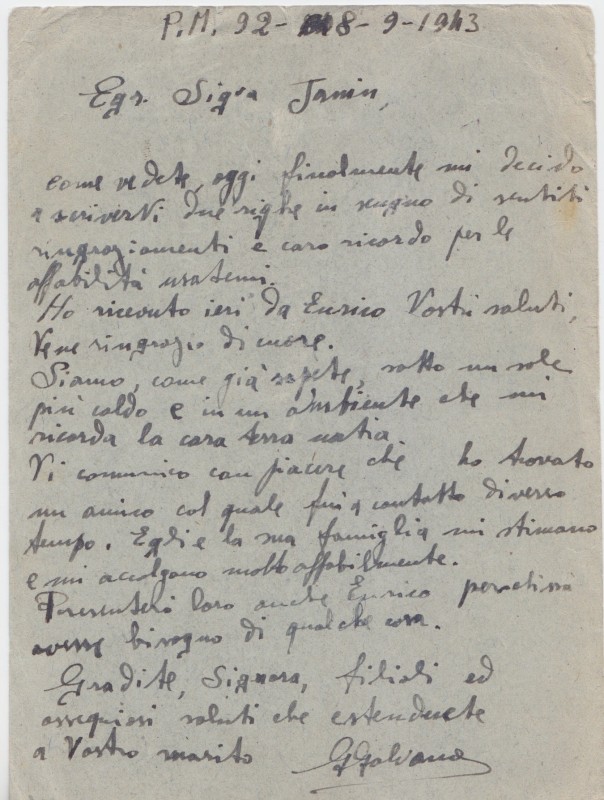 P.M. 92 - 8-9-1943
Egr. Sig.ra Jernin,
come vedete, oggi finalmente mi decido
a scriverVi due righe in segno di sentiti
ringraziamenti e caro ricordo per le
affabilità usatemi.
Ho ricevuto ieri da Enrico Vostri saluti,
Ve ne ringrazio di cuore.
Siamo, come già sapete, sotto un sole
più caldo e in un ambiente che mi
ricorda la cara terra natia.
Vi comunico con piacere che ho trovato
un amico col quale fui a contatto diverso
tempo. Egli e la sua famiglia mi stimano
e mi accolgono molto affabilmente.
Presenterò loro anche Enrico
avesse bisogno di qualche cosa.
Gradite, Signora, filiali ed
ossequiosi saluti che estenderete
a Vostro marito GGalvano